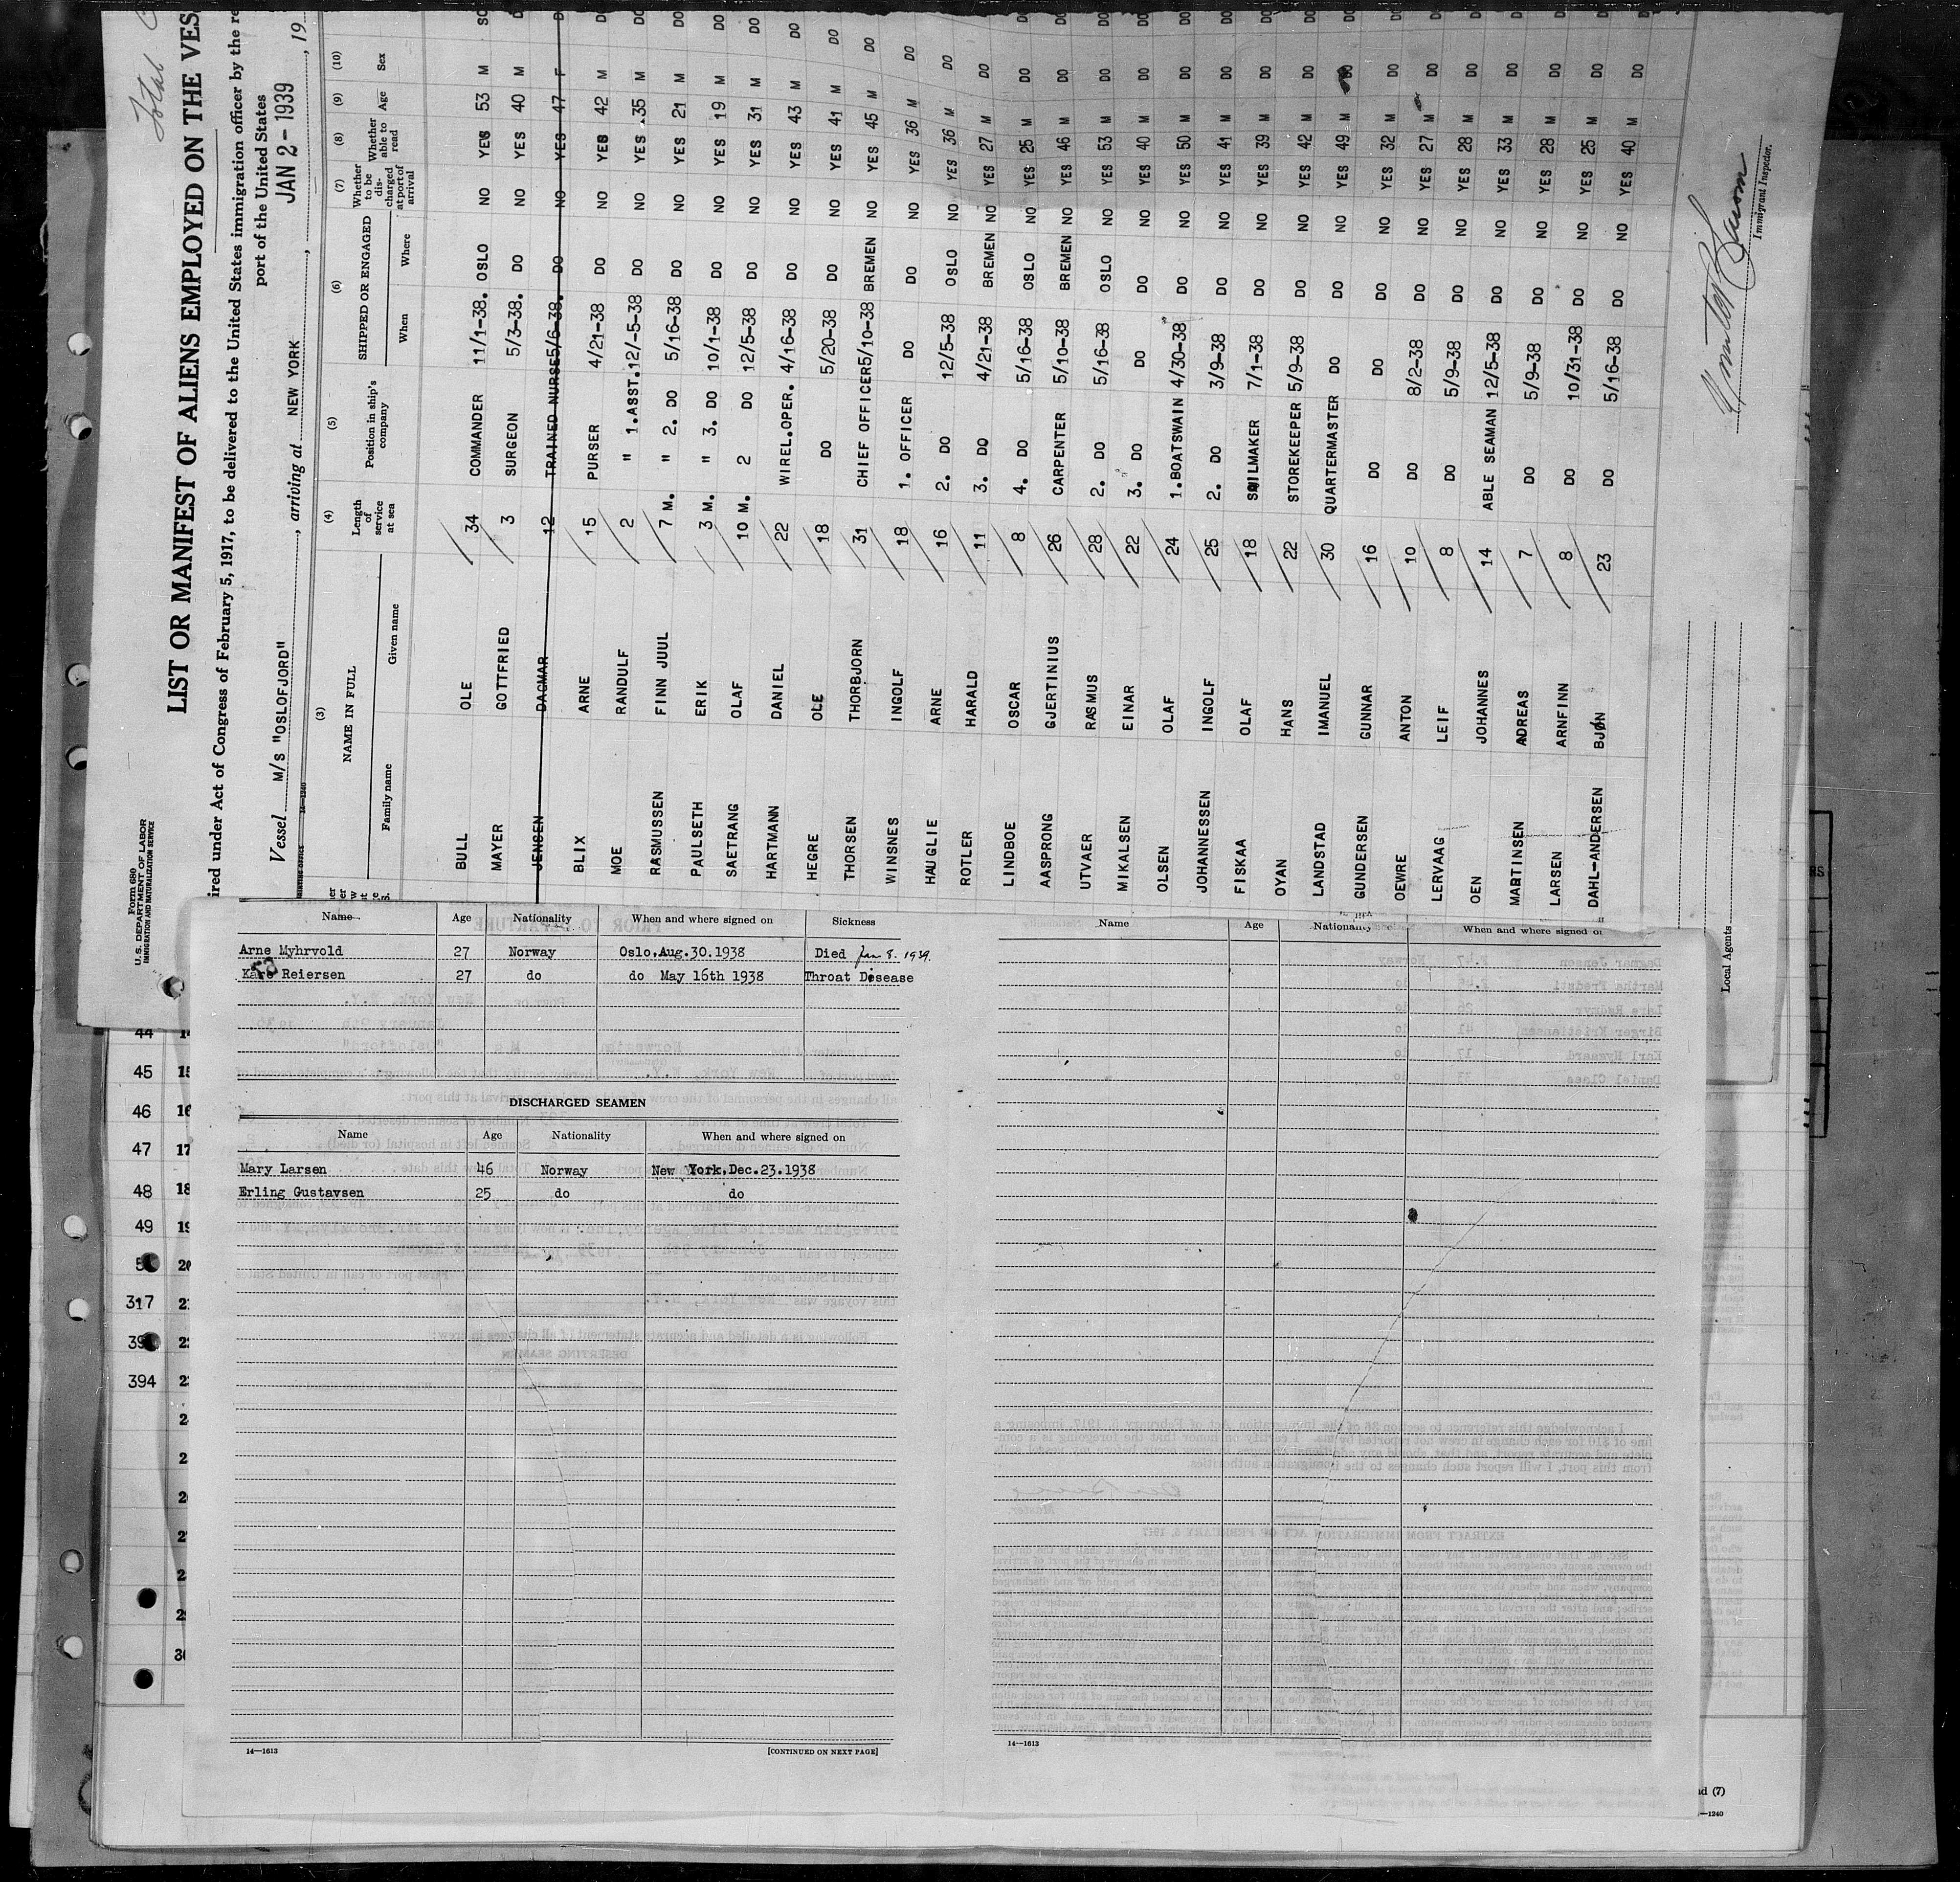 Form 680
U. S. DEPARTMENT OF LABOR
IMMIGRATION AND NATURALIZATION SERVICE
Total
LIST OR MANIFEST OF ALIENS EMPLOYED ON THE VES
ired under Act of Congress of February 5, 1917, to be delivered to the United States immigration officer by the re
port of the United States
Vessel M/S "OSLOFJORD", arriving at NEW YORK, JAN 2 - 1939, 19
14—1240
(3) (4) (5) (6) (7) (8) (9) (10)
NAME IN FULL Length of service at sea Position in ship's company SHIPPED OR ENGAGED Whether to be discharged at port of arrival Whether able to read Age Sex
Family name Given name When Where
BULL OLE 34 COMMANDER 11/1-38. OSLO NO YES 53 M SC
MAYER GOTTFRIED 3 SURGEON 5/3-38. DO NO YES 40 M D
JENSEN DAGMAR 12 TRAINED NURSE 5/6-38. DO NO YES 47 F D
BLIX ARNE 15 PURSER 4/21-38 DO NO YES 42 M DO
MOE RANDULF 2 " 1.ASST. 12/-5-38 DO NO YES 35 M DO
RASMUSSEN FINN JUUL 7 M. " 2. DO 5/16-38 DO NO YES 21 M DO
PAULSETH ERIK 3 M. " 3. DO 10/1-38 DO NO YES 19 M DO
SAETRANG OLAF 10 M. 2 DO 12/5-38 DO NO YES 31 M DO
HARTMANN DANIEL 22 WIREL.OPER. 4/16-38 DO NO YES 43 M DO
HEGRE OLE 18 DO 5/20-38 DO NO YES 41 M DO
THORSEN THORBJORN 31 CHIEF OFFICER 5/10-38 BREMEN NO YES 45 M DO
WINSNES INGOLF 18 1. OFFICER DO DO NO YES 36 M DO
HAUGLIE ARNE 16 2. DO 12/5-38 OSLO NO YES 36 M DO
ROTLER HARALD 11 3. DO 4/21-38 BREMEN NO YES 27 M DO
LINDBOE OSCAR 8 4. DO 5/16-38 OSLO NO YES 25 M DO
AASPRONG GJERTINIUS 26 CARPENTER 5/10-38 BREMEN NO YES 46 M DO
UTVAER RASMUS 28 2. DO 5/16-38 OSLO NO YES 53 M DO
MIKALSEN EINAR 22 3. DO DO DO NO YES 40 M DO
OLSEN OLAF 24 1.BOATSWAIN 4/30-38 DO NO YES 50 M DO
JOHANNESSEN INGOLF 25 2. DO 3/9-38 DO NO YES 41 M DO
FISKAA OLAF 18 SAILMAKER 7/1-38 DO NO YES 39 M DO
OYAN HANS 22 STOREKEEPER 5/9-38 DO NO YES 42 M DO
LANDSTAD IMANUEL 30 QUARTERMASTER DO DO NO YES 49 M DO
GUNDERSEN GUNNAR 16 DO DO DO NO YES 32 M DO
OEWRE ANTON 10 DO 8/2-38 DO NO YES 27 M DO
LERVAAG LEIF 8 DO 5/9-38 DO NO YES 28 M DO
OEN JOHANNES 14 ABLE SEAMAN 12/5-38 DO NO YES 33 M DO
MARTINSEN ADREAS 7 DO 5/9-38 DO NO YES 28 M DO
LARSEN ARNFINN 8 DO 10/31-38 DO NO YES 25 M DO
DAHL-ANDERSEN BJØN 23 DO 5/16-38 DO NO YES 40 M DO
Local Agents
Immigrant Inspector.
Name Age Nationality When and where signed on Sickness
Arne Myhrvold 27 Norway Oslo,Aug.30.1938 Died Jan 8. 1939.
Kare Reiersen 27 do do May 16th 1938 Throat Disease
DISCHARGED SEAMEN
Name Age Nationality When and where signed on
Mary Larsen 46 Norway New York,Dec.23.1938
Erling Gustavsen 25 do do
14—1613 [CONTINUED ON NEXT PAGE]
Name Age Nationality When and where signed on
14—1613
44
45
46
47
48
49
317
394
nd (7)
—1240